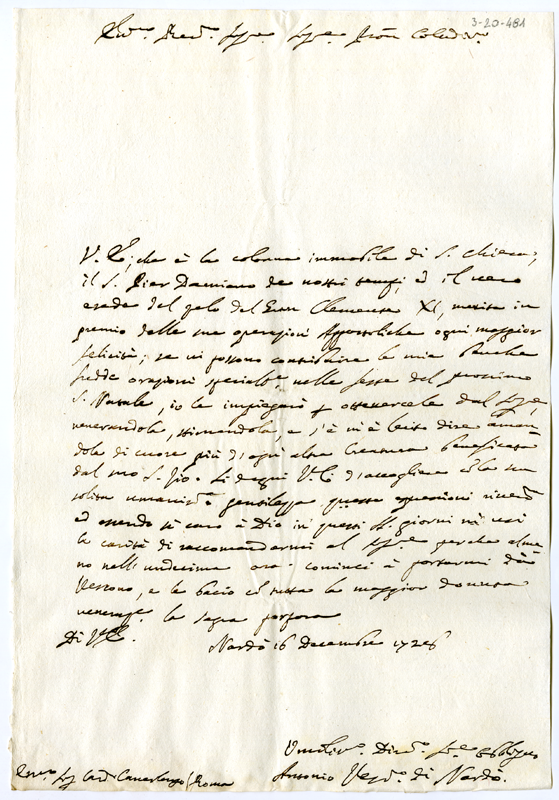 3-20-481
V. E., che è la colonna immobile di S. Chiesa,
il S. Pier Damiano de nostri tempi, ed il vero
erede del zelo del Gran Clemente XI, merita in
premio delle sue operazioni Appostoliche ogni maggior
felicità; se vi possono contribuire le mie benche
fredde orazioni specialm.e nelle feste del prossimo
S. Natale, io le impiegarò p ottenercele dal Sig.e,
venerandola, stimandola, e s'è mi è lecito dire aman
dola di cuore più d'ogni altra Creatura beneficata
dal suo S. Zio. Si degni V. E. d'accogliere cõ la sua
solita umanità e gentilezza queste espressioni
ed essendo sì caro à Dio in questi SS. giorni mi usi
la carità di raccomandarmi al Sig.e perche alme
no nell'undecima ora cominci à portarmi da
Vescovo, e le bacio cõ tutta la maggior dovuta
veneraz.e la sagra porpora
Di V. E.
Nardò 16 Decembre 1726
Umiliss.o Div.mo Se.re Obbligmo
Antonio Vesc.o di Nardò.
Card. Camerlengo / Roma